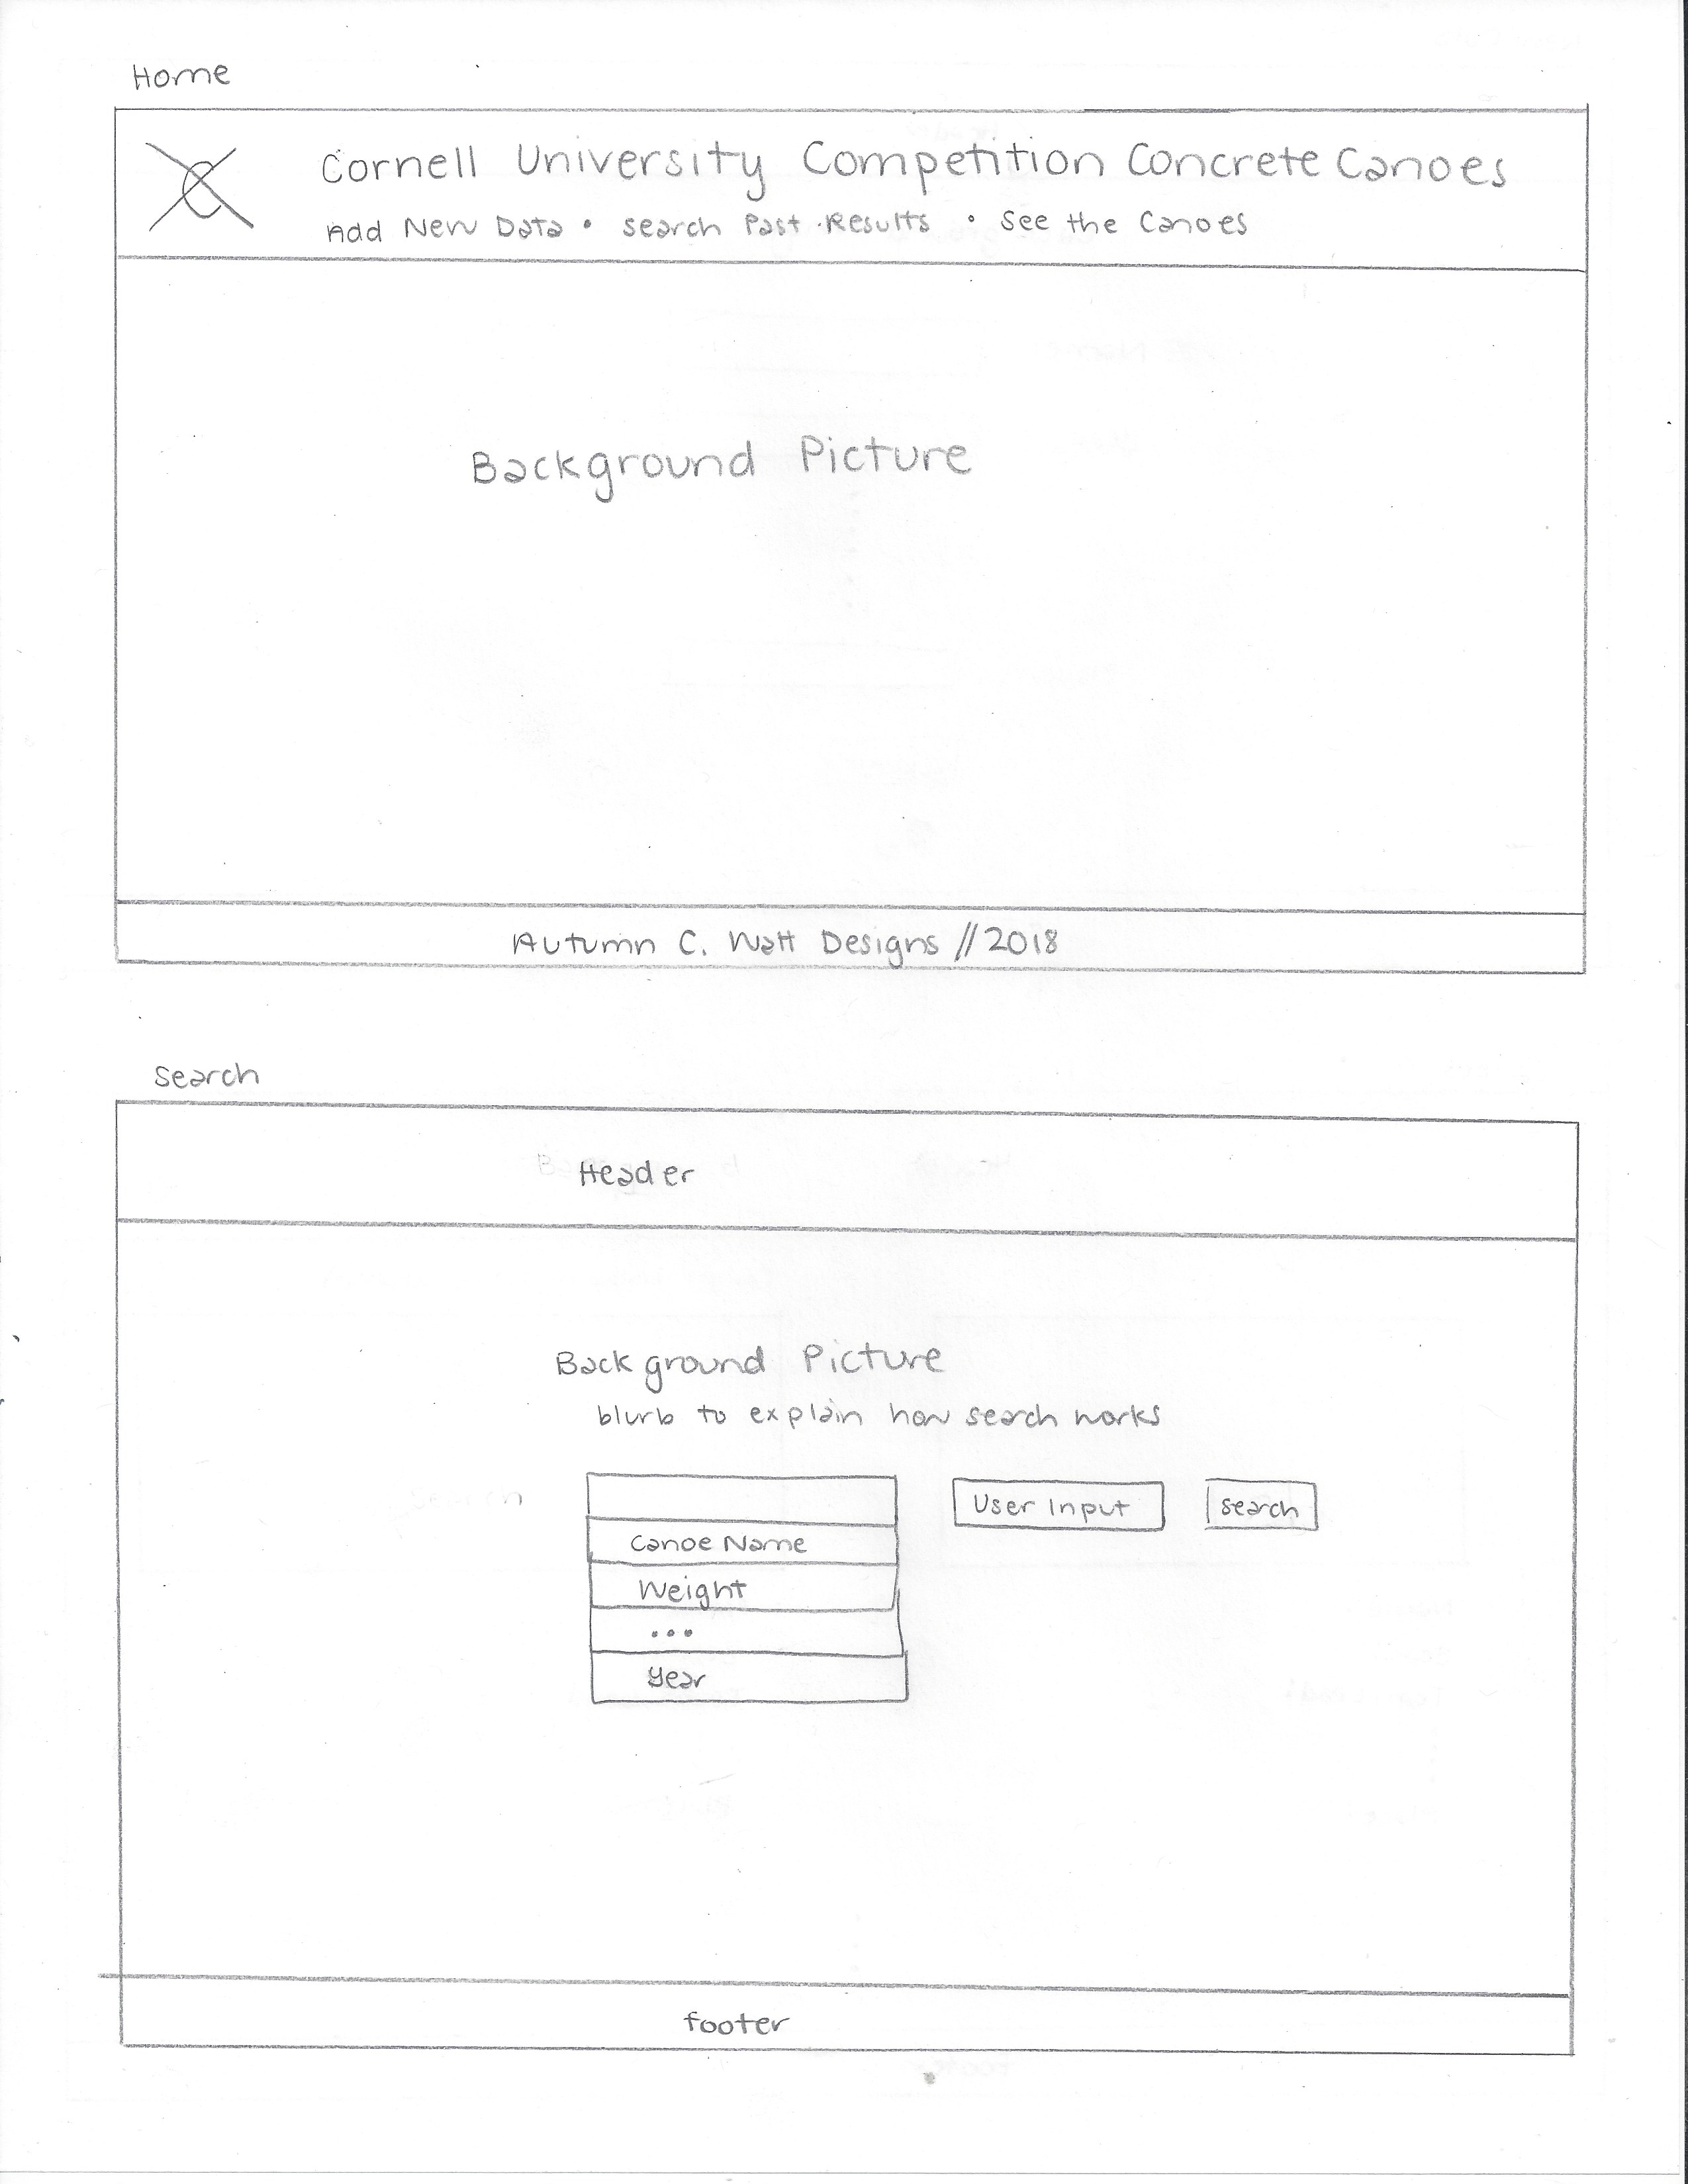 Home
C
Cornell University Competition Concrete Canoes
Add New Data • Search Past Results • See the Canoes
Background Picture
Autumn C. Watt Designs // 2018
Search
Header
Background Picture
blurb to explain how search works
User Input
Search
Canoe Name
Weight
...
Year
footer